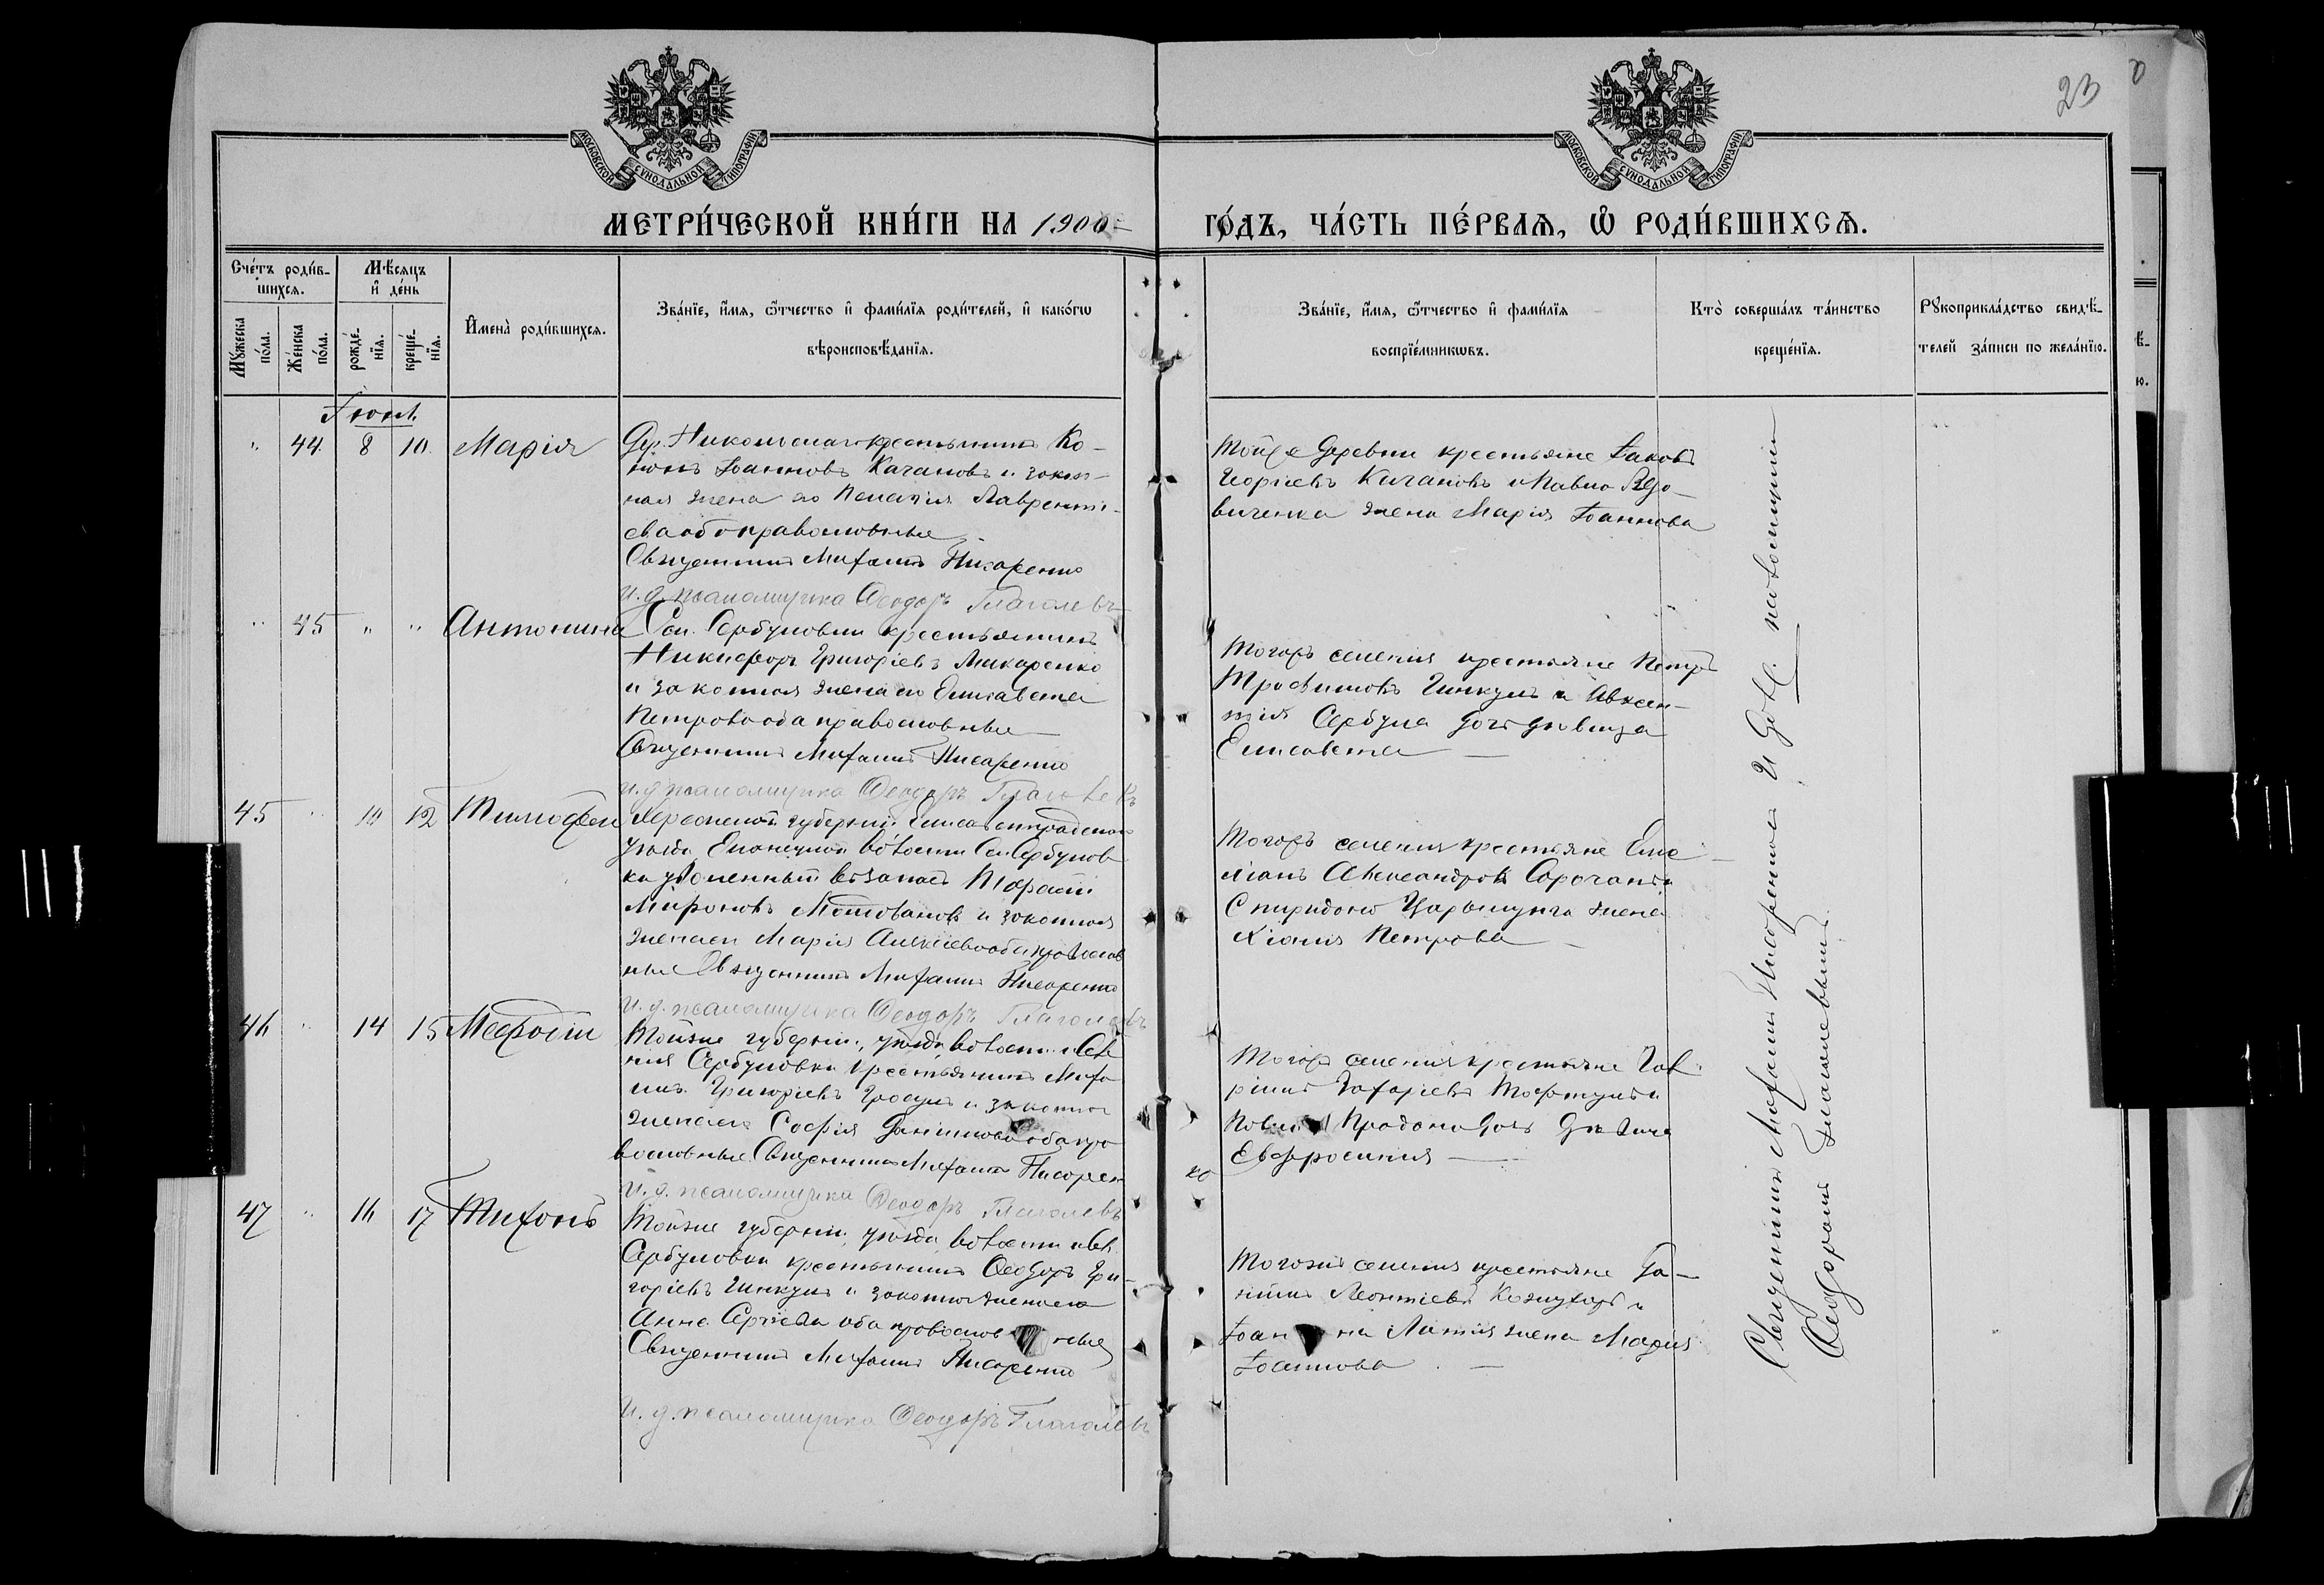 23
МОСКОВСКОЙ СѴНОДАЛЬНОЙ ТИПОГРАФІИ
МОСКОВСКОЙ СѴНОДАЛЬНОЙ ТИПОГРАФІИ
МЕТРИ́ЧЕСКОЙ КНИ́ГИ НА 1900
ГО́ДЪ, ЧА́СТЬ ПЕ́РВАѦ, Ѽ РОДИ́ВШИХСѦ.
Сче́тъ роди́в-
шихсѧ.
Мѣ́сѧцъ
и҆ де́нь
Мꙋ́жеска
по́ла.
Же́нска
по́ла.
рожде́-
нїѧ.
креще́-
нїѧ.
И҆мена̀ роди́вшихсѧ.
Зва́нїе, и҆́мѧ, ѻ҆́тчество и҆ фами́лїѧ роди́телей, и҆ како́гѡ
вѣроисповѣ́данїѧ.
Зва́нїе, и҆́мѧ, ѻ҆́тчество и҆ фами́лїѧ
воспрїе́мникѡвъ.
Кто̀ соверша́лъ та́инство
креще́нїѧ.
Рꙋкоприкла́дство свидѣ́-
телей за́писи по жела́нїю.
" 44. 8 10. Марія
Дер. Никольская крестьянинъ Ко-
нонъ Іоанновъ Качановъ и закон-
ная жена его Пелагія Лавренті-
ева оба православные
Священникъ Михаилъ Писаренко
И. д. псаломщика Ѳеодоръ Глаголевъ
Той же деревни крестьяне Іаковъ
Георгіевъ Качановъ и Павла Вдо-
виченка жена Марія Іоаннова
" 45 " " Антонина
Сел. Сербуловки крестьянинъ
Никифоръ Григоріевъ Макаренко
и законная жена его Елисавета
Петрова оба православные
Священникъ Михаилъ Писаренко
И. д. псаломщика Ѳеодоръ Глаголевъ
Тогожъ селенія крестьяне Петръ
Трофимовъ Гинкулъ и Авксен-
тія Сербула дочь дѣвица
Елисавета
45 " 10 12 Тимофей
Херсонской губерніи Елисаветградскаго
уѣзда Еланецкой волости Сел. Сербулов-
ки уволенный въ запасъ Тарасій
Мироновъ и законная
жена его Марія Алексіева оба православ
ные Священникъ Михаилъ Писаренко
И. д. псаломщика Ѳеодоръ Глаголевъ
Тогожъ селенія крестьяне Еме-
ліанъ Александровъ Сорочанъ и
Спиридона жена
Хіонія Петрова
46 " 14 15 Меѳодій
Той же губерніи, уѣзда, волости и Селе
нія Сербуловки крестьянинъ Миха
илъ Григоріевъ и законная
жена его Софія Даніилова оба пра
вославные Священникъ Михаилъ Писарен
ко
И. д. псаломщика Ѳеодоръ Глаголевъ
Тогожъ селенія крестьяне Гав-
ріилъ Захаріевъ и
Павла дочь дѣвица
Евфросинія
47 " 16 17 Тихонъ
Той же губерніи, уѣзда, волости и Сел.
Сербуловки крестьянинъ Ѳеодоръ Гри-
горіевъ Гинкулъ и законная жена его
Анна Сергіева оба православные
Священникъ Михаилъ Писаренко
И. д. псаломщика Ѳеодоръ Глаголевъ
Тогожъ селенія крестьяне Да-
ніилъ Леонтіевъ Кожухарь и
Іоанна жена Марія
Іоаннова
Священникъ Михаилъ Писаренко и И. д. псаломщика
Ѳеодоръ